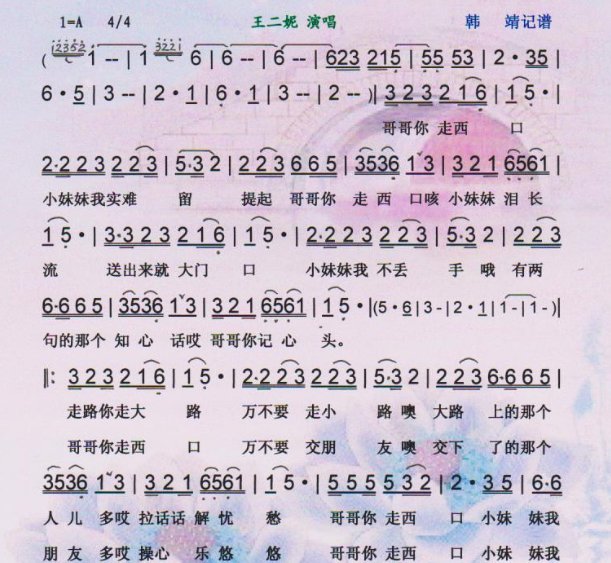 1=A 4/4 王二妮 演唱 韩 靖记谱
( 12352 1 -- | 1 3221 6 | 6 -- | 6 -- | 623 215 | 55 53 | 2 · 35 |
6 · 5 | 3 -- | 2 · 1 | 6 · 1 | 3 -- | 2 -- )| 3 2 3 2 1 6 | 1 5 · |
哥哥你 走西 口
2·2 2 3 2 2 3 | 5·3 2 | 2 2 3 6 6 5 | 3536 1 3 | 3 2 1 6561 |
小妹妹我实难 留 提起 哥哥你 走 西 口咳 小妹妹 泪 长
1 5 · | 3·3 2 3 2 1 6 | 1 5 · | 2·2 2 3 2 2 3 | 5·3 2 | 2 2 3
流 送出来就 大门 口 小妹妹我 不丢 手 哦 有两
6·6 6 5 | 3536 1 3 | 3 2 1 6561 | 1 5 · |(5 · 6 | 3 - | 2 · 1 | 1 - | 1 - )|
句的那个 知 心 话哎 哥哥你记 心 头。
‖: 3 2 3 2 1 6 | 1 5 · | 2·2 2 3 2 2 3 | 5·3 2 | 2 2 3 6·6 6 5 |
走路你走大 路 万不要 走小 路噢 大路 上的那个
哥哥你走西 口 万不要 交朋 友噢 交下 了的那个
3536 1 3 | 3 2 1 6561 | 1 5 · | 5 5 5 5 3 2 | 2 · 3 5 | 6·6
人 儿 多哎 拉话话 解 忧 愁 哥哥你 走西 口 小妹 妹我
朋 友 多哎 操心 乐 悠 悠 哥哥你 走西 口 小妹 妹我